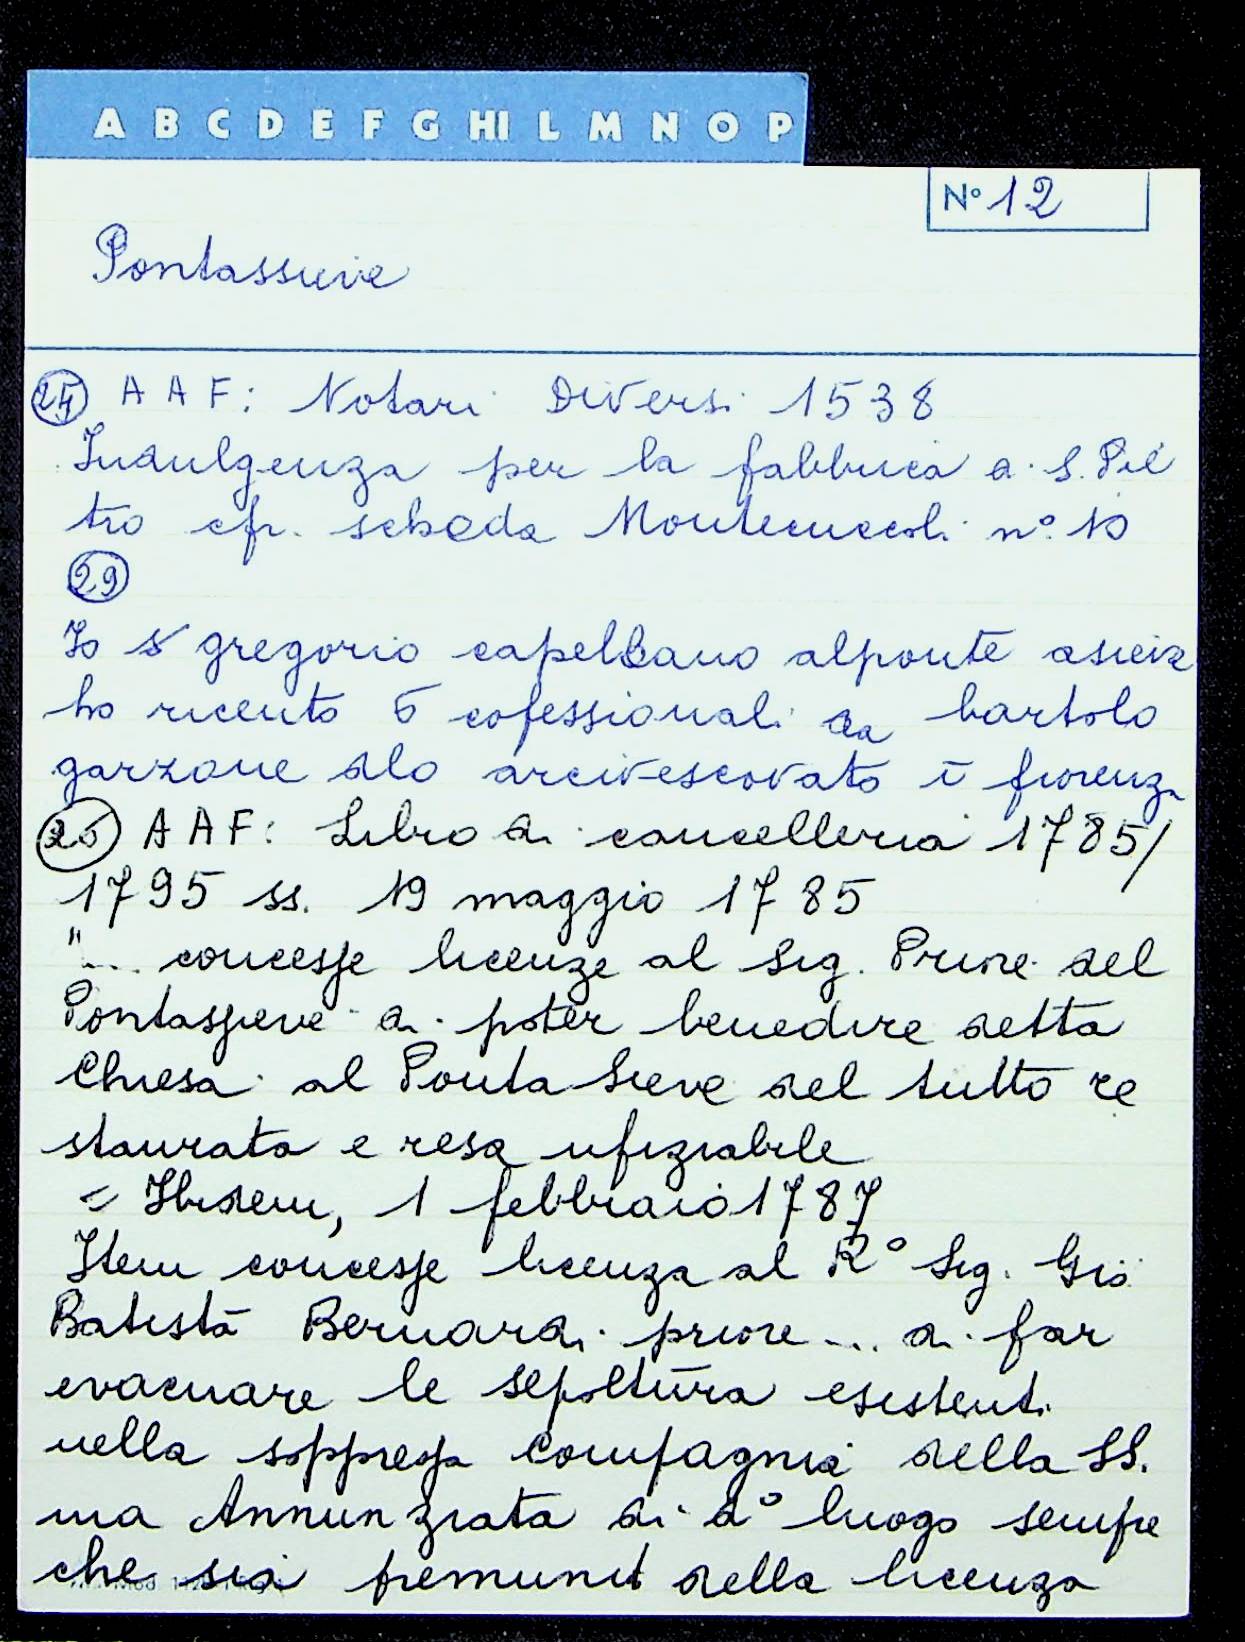 A B C D E F G HI L M N O P
N° 12
Pontassieve
24 A A F: Notari Diversi 1538
Indulgenza per la fabbrica di S. Pie
tro cfr. scheda Montecuccoli n° 10
29
Io s gregorio capellano alponte asieve
ho ricevuto 6 cofessionali da bartolo
garzone dlo arcivescovato ī fiorenza
26 A A F: Libro di cancelleria 1785/
1795 ss. 19 maggio 1785
"... concesse licenze al Sig. Priore del
Pontassieve di poter benedire detta
Chiesa al Ponta Sieve del tutto re
staurata e resa ufiziabile
= Ibidem, 1 febbraio 1787
Item concesse licenza al R° Sig. Gio
Batista Bernardi priore ... di far
evacuare le sepoltura esistenti
nella soppressa Compagnia della SS.
ma Annunziata di d° luogo sempre
che sia premunit della licenza